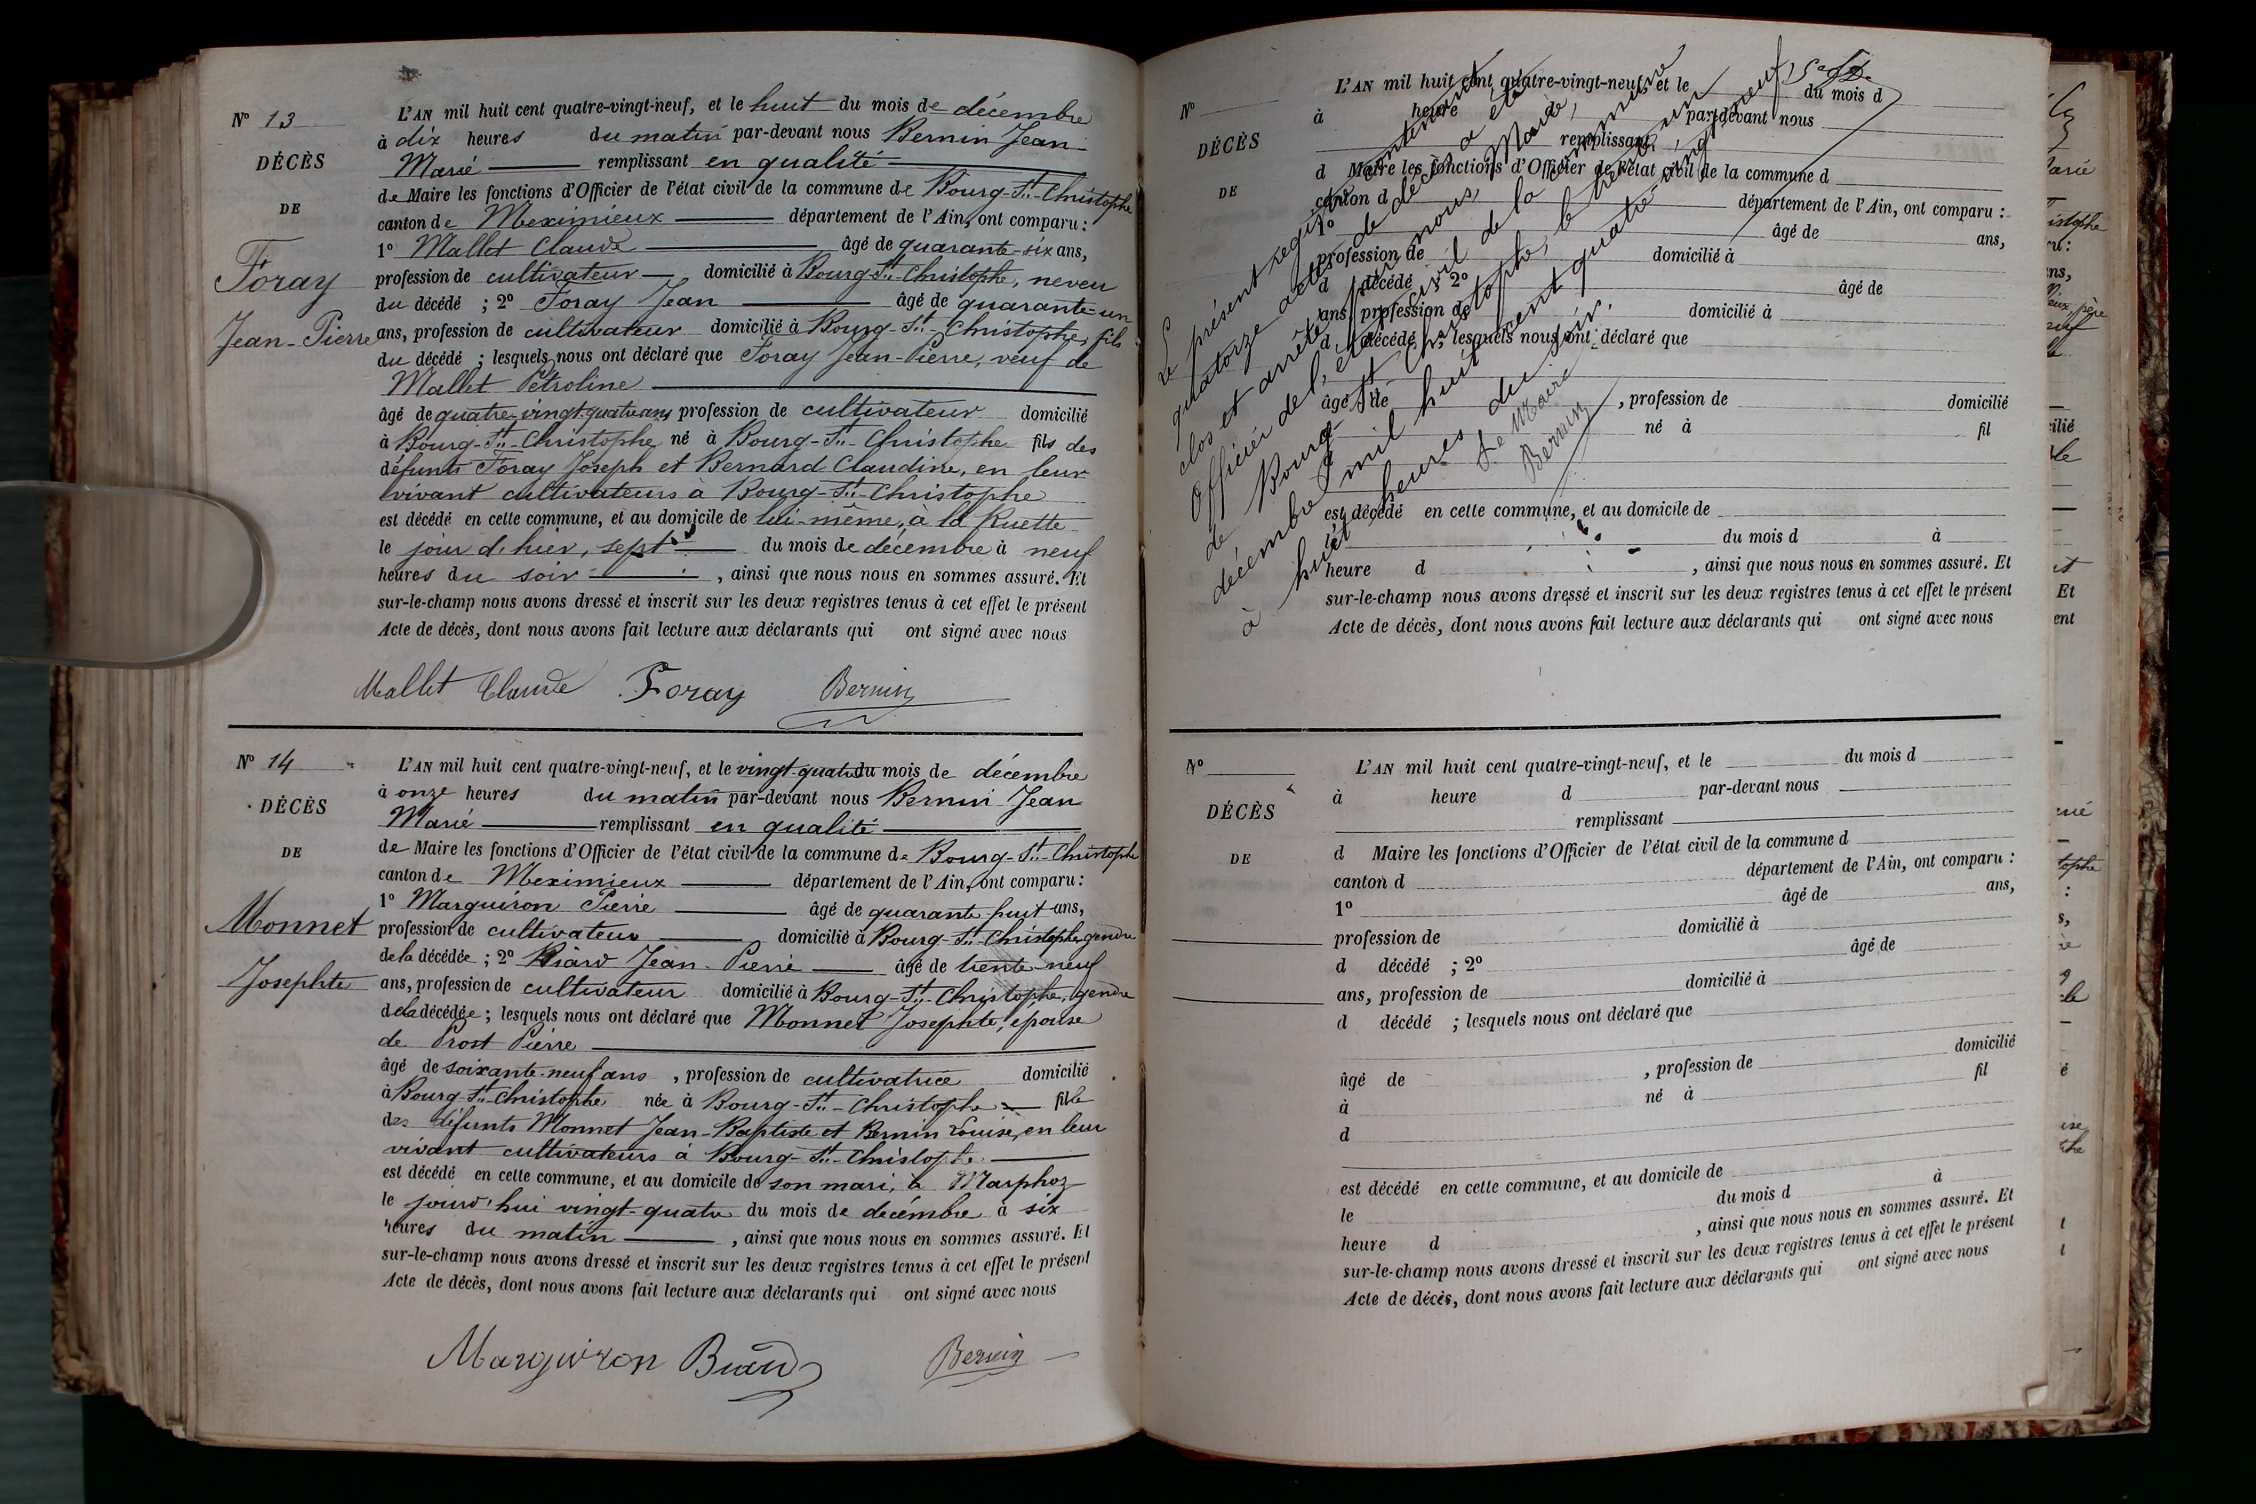 N° 13
DÉCÈS
DE
Foray
Jean-Pierre
L'AN mil huit cent quatre-vingt-neuf, et le huit du mois de décembre
à dix heures du matin par-devant nous Bernin Jean
Marie remplissant en qualité
de Maire les fonctions d'Officier de l'état civil de la commune de Bourg-St-Christophe
canton de Meximieux département de l'Ain, ont comparu :
1° Mallet Claude âgé de quarante-six ans,
profession de cultivateur domicilié à Bourg-St-Christophe, neveu
du décédé ; 2° Foray Jean âgé de quarante-un
ans, profession de cultivateur domicilié à Bourg-St-Christophe, fils
du décédé ; lesquels nous ont déclaré que Foray Jean-Pierre, veuf de
Mallet Pétroline
âgé de quatre-vingt-quatre ans profession de cultivateur domicilié
à Bourg-St-Christophe né à Bourg-St-Christophe fils des
défunts Foray Joseph et Bernard Claudine, en leur
vivant cultivateurs à Bourg-St-Christophe
est décédé en cette commune, et au domicile de lui-même, à la Ruette
le jour d'hier, sept du mois de décembre à neuf
heures du soir , ainsi que nous nous en sommes assuré. Et
sur-le-champ nous avons dressé et inscrit sur les deux registres tenus à cet effet le présent
Acte de décès, dont nous avons fait lecture aux déclarants qui ont signé avec nous
Mallet Claude Foray Bernin
N° 14
DÉCÈS
DE
Monnet
Josephte
L'AN mil huit cent quatre-vingt-neuf, et le vingt-quatre du mois de décembre
à onze heures du matin par-devant nous Bernin Jean
Marie remplissant en qualité
de Maire les fonctions d'Officier de l'état civil de la commune de Bourg-St-Christophe
canton de Meximieux département de l'Ain, ont comparu :
1° Marguiron Pierre âgé de quarante-huit ans,
profession de cultivateur domicilié à Bourg-St-Christophe gendre
de la décédée ; 2° Biard Jean-Pierre âgé de trente-neuf
ans, profession de cultivateur domicilié à Bourg-St-Christophe, gendre
de la décédée ; lesquels nous ont déclaré que Monnet Josephte, épouse
de Prost Pierre
âgé de soixante-neuf ans , profession de cultivatrice domicilié
à Bourg-St-Christophe née à Bourg-St-Christophe fille
des défunts Monnet Jean-Baptiste et Bernin Louise, en leur
vivant cultivateurs à Bourg-St-Christophe
est décédé en cette commune, et au domicile de son mari, à Marphoz
le jourd'hui vingt-quatre du mois de décembre à six
heures du matin , ainsi que nous nous en sommes assuré. Et
sur-le-champ nous avons dressé et inscrit sur les deux registres tenus à cet effet le présent
Acte de décès, dont nous avons fait lecture aux déclarants qui ont signé avec nous
Marguiron Biard Bernin
N°
DÉCÈS
DE
L'AN mil huit cent quatre-vingt-neuf, et le du mois d
à heure d par-devant nous
remplissant
d Maire les fonctions d'Officier de l'état civil de la commune d
canton d département de l'Ain, ont comparu :
1° âgé de ans,
profession de domicilié à
d décédé ; 2° âgé de
ans, profession de domicilié à
d décédé ; lesquels nous ont déclaré que
âgé de , profession de domicilié
à né à fil
d
est décédé en cette commune, et au domicile de
le du mois d à
heure d , ainsi que nous nous en sommes assuré. Et
sur-le-champ nous avons dressé et inscrit sur les deux registres tenus à cet effet le présent
Acte de décès, dont nous avons fait lecture aux déclarants qui ont signé avec nous
Le présent registre contenant
quatorze actes de décès a été
clos et arrêté par nous, Maire,
Officier de l'état civil de la commune
de Bourg-St-Christophe, le trente-un
décembre mil huit cent quatre-vingt-neuf
à huit heures du soir.
Le Maire
Bernin
N°
DÉCÈS
DE
L'AN mil huit cent quatre-vingt-neuf, et le du mois d
à heure d par-devant nous
remplissant
d Maire les fonctions d'Officier de l'état civil de la commune d
canton d département de l'Ain, ont comparu :
1° âgé de ans,
profession de domicilié à
d décédé ; 2° âgé de
ans, profession de domicilié à
d décédé ; lesquels nous ont déclaré que
âgé de , profession de domicilié
à né à fil
d
est décédé en cette commune, et au domicile de
le du mois d à
heure d , ainsi que nous nous en sommes assuré. Et
sur-le-champ nous avons dressé et inscrit sur les deux registres tenus à cet effet le présent
Acte de décès, dont nous avons fait lecture aux déclarants qui ont signé avec nous